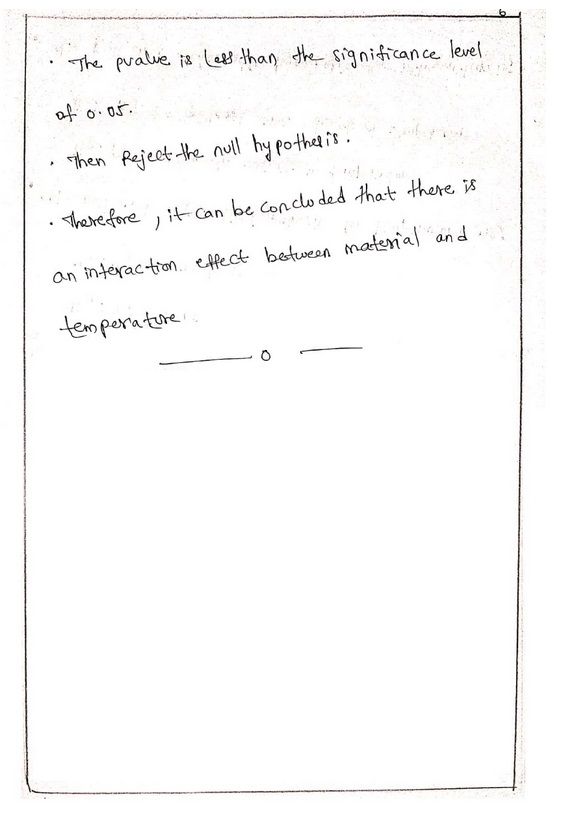 6
· The pvalue is less than the significance level
of 0.05.
· Then Reject the null hypothesis.
· Therefore, it can be concluded that there is
an interaction effect between material and
temperature
o